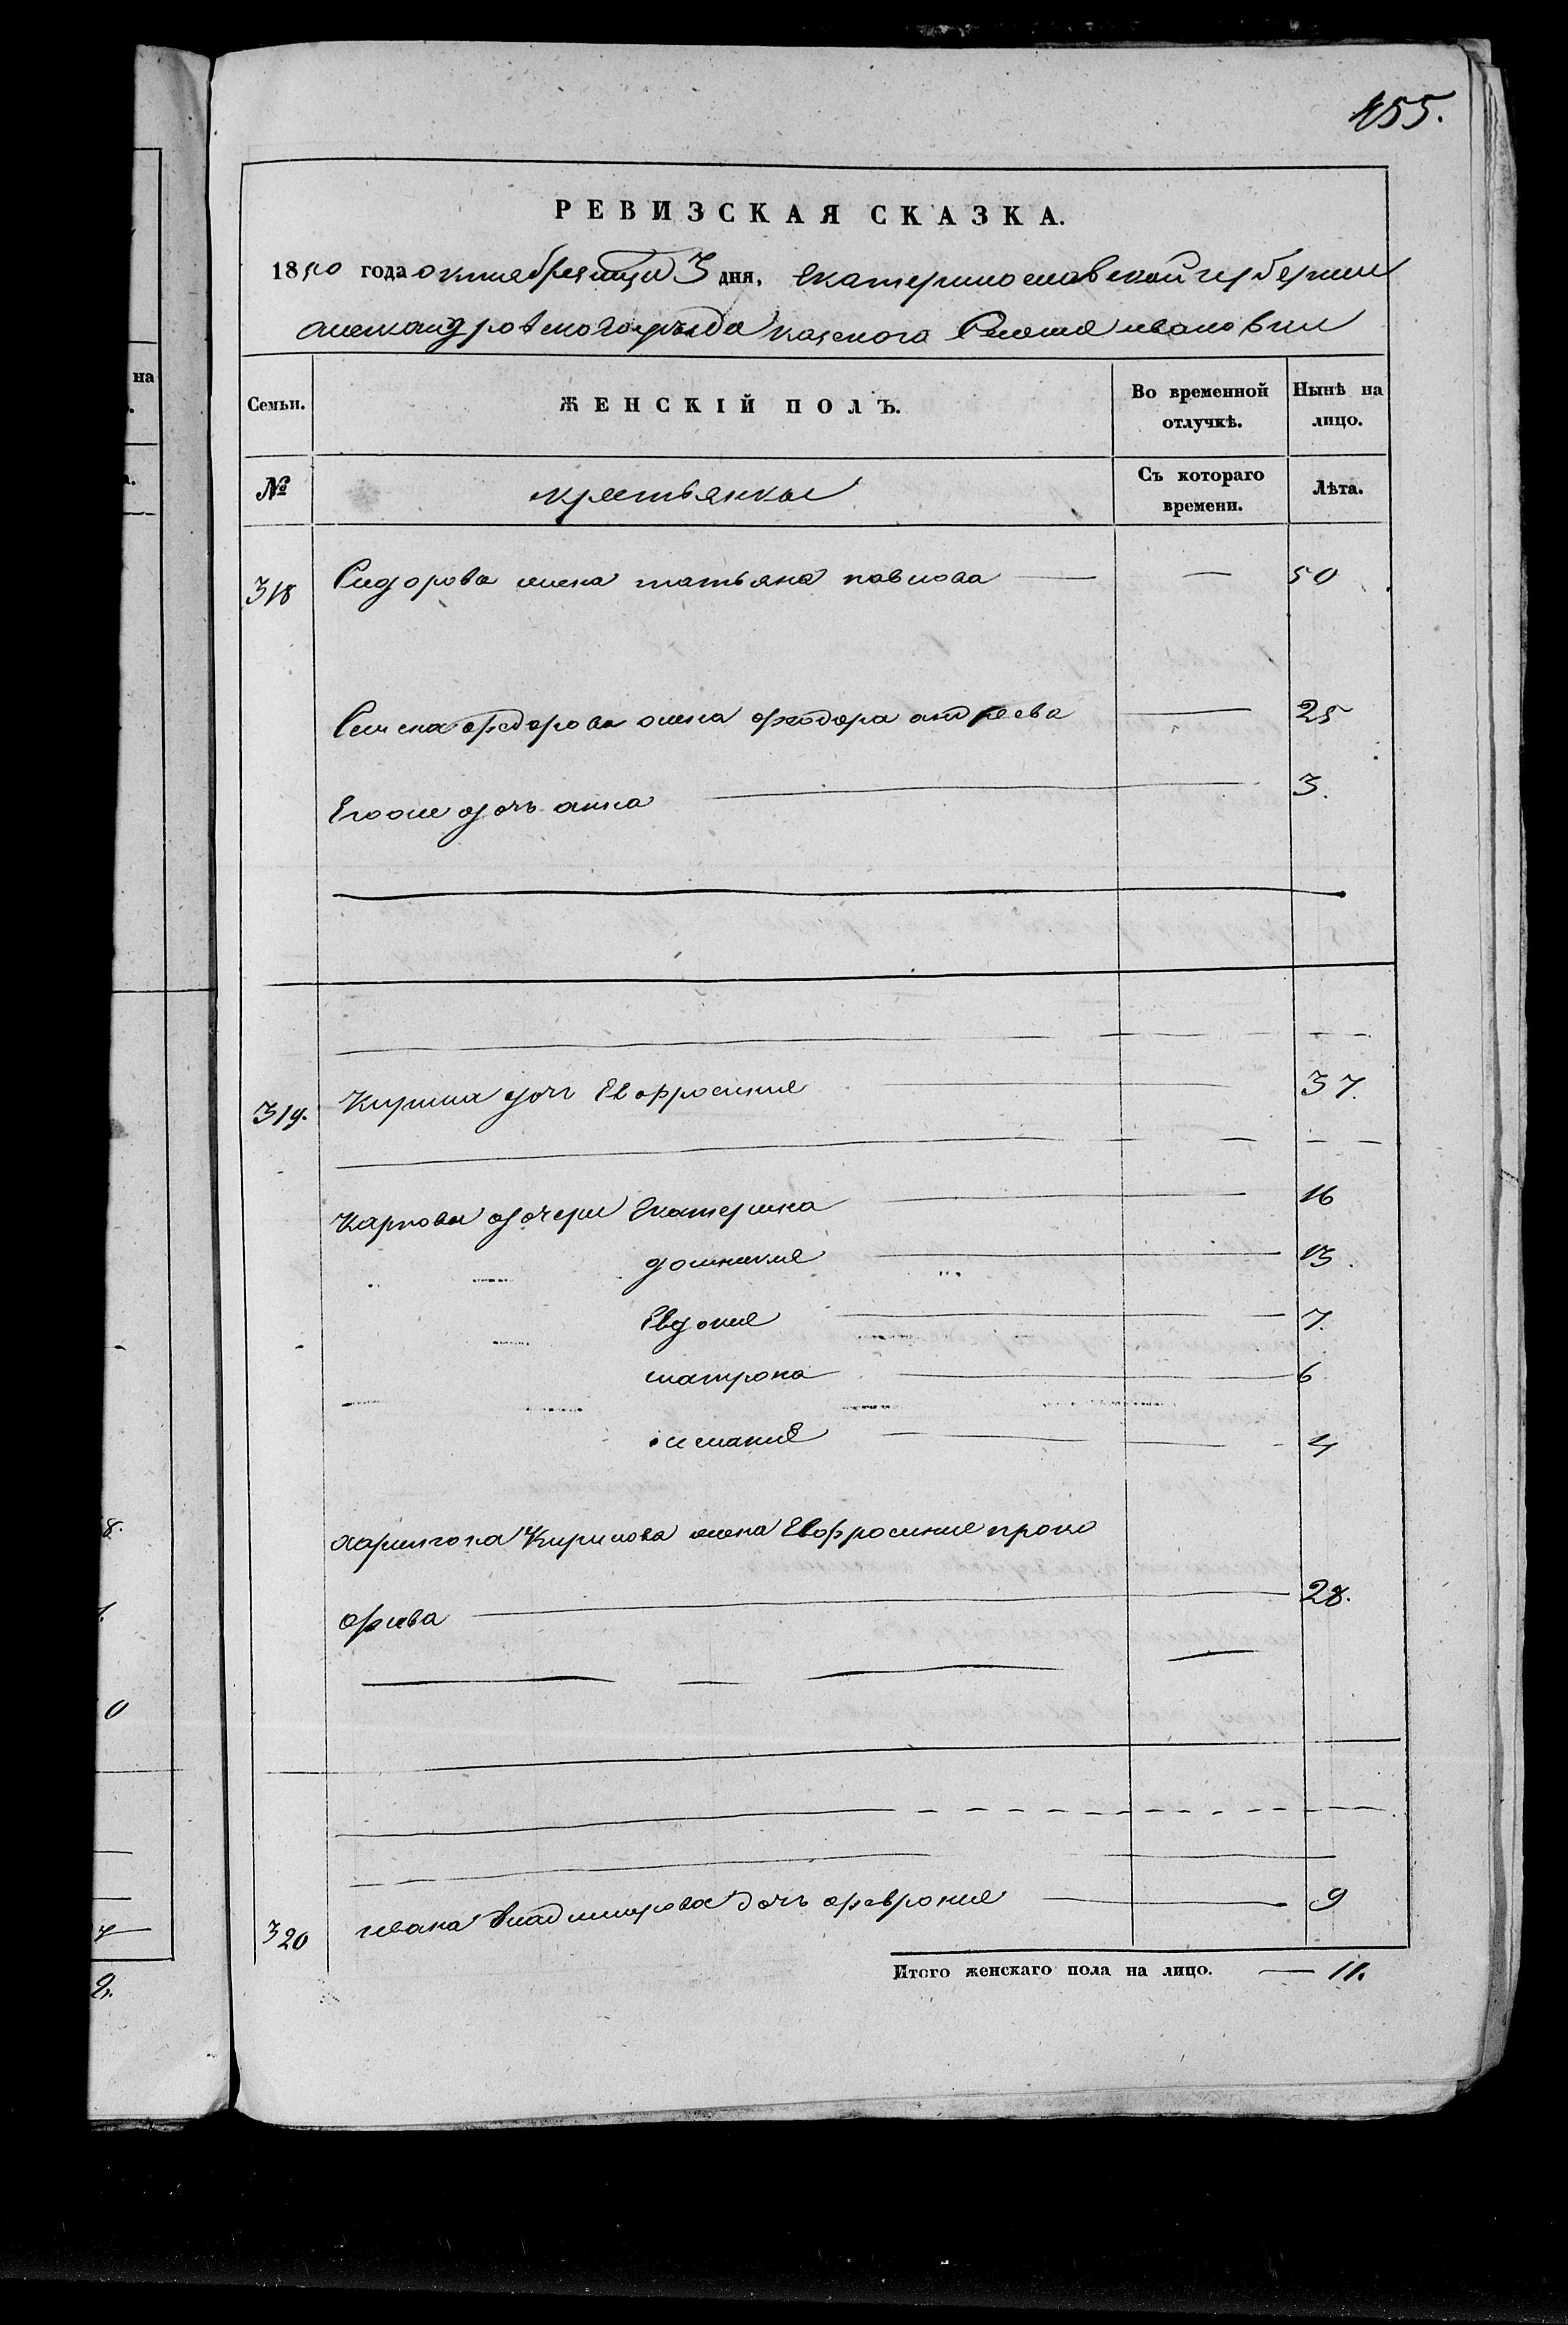 155.
РЕВИЗСКАЯ СКАЗКА.
1850 года октября месяца 3 дня, екатеринославской губернии
александровского уезда казеного Селения ивановки
на
Семьи. ЖЕНСКІЙ ПОЛЪ. Во временной отлучкѣ. Нынѣ на лицо.
№ крестьянки Съ котораго времени. Лѣта.
318 Сидорова жена татьяна павлова — — 50
федорова жена феодора андреева — 25
Егоже дочь анна — 3.
319. дочь Евфросиния 37.
Карпова дочери Екатерина 16
домникия 13
Евдокия 7.
матрона 6
4
харитона Кирилова жена Евфросиния проко
фиева — 28.
320 ивана владимирова дочь феврония — 9
Итого женскаго пола на лицо. — 11.